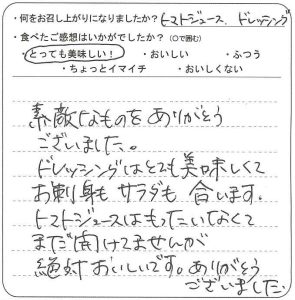 ・何をお召し上がりになりましたか？トマトジュース、ドレッシング
・食べたご感想はいかがでしたか？（○で囲む）
・とっても美味しい！ ・おいしい ・ふつう
・ちょっとイマイチ ・おいしくない
素敵なものをありがとう
ございました。
ドレッシングはとても美味しくて
お刺身もサラダも合います。
トマトジュースはもったいなくて
まだ開けてませんが
絶対おいしいです。ありがとう
ございました。